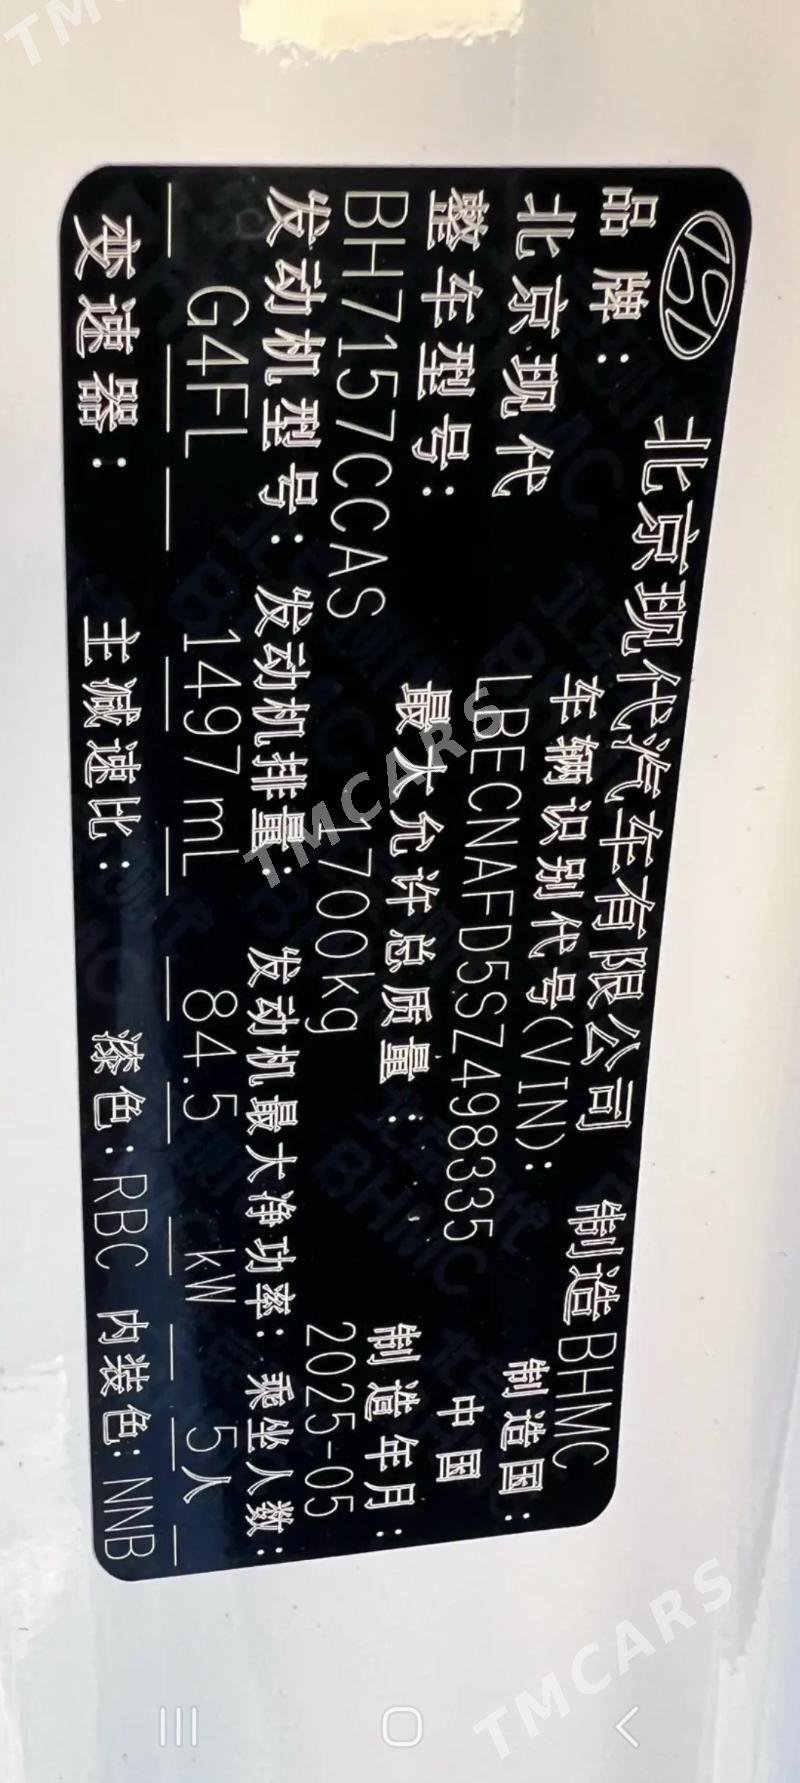 北京现代汽车有限公司 制造 BHMC
品牌: 车辆识别代号(VIN): 制造国:
北京现代 LBECNAFD5SZ498335 中国
整车型号: 最大允许总质量: 制造年月:
BH7157CCAS 1700kg 2025-05
发动机型号: 发动机排量: 发动机最大净功率: 乘坐人数:
G4FL 1497 mL 84.5 kW 5人
变速器: 主减速比: 漆色: RBC 内装色: NNB
TMCARS
TMCARS